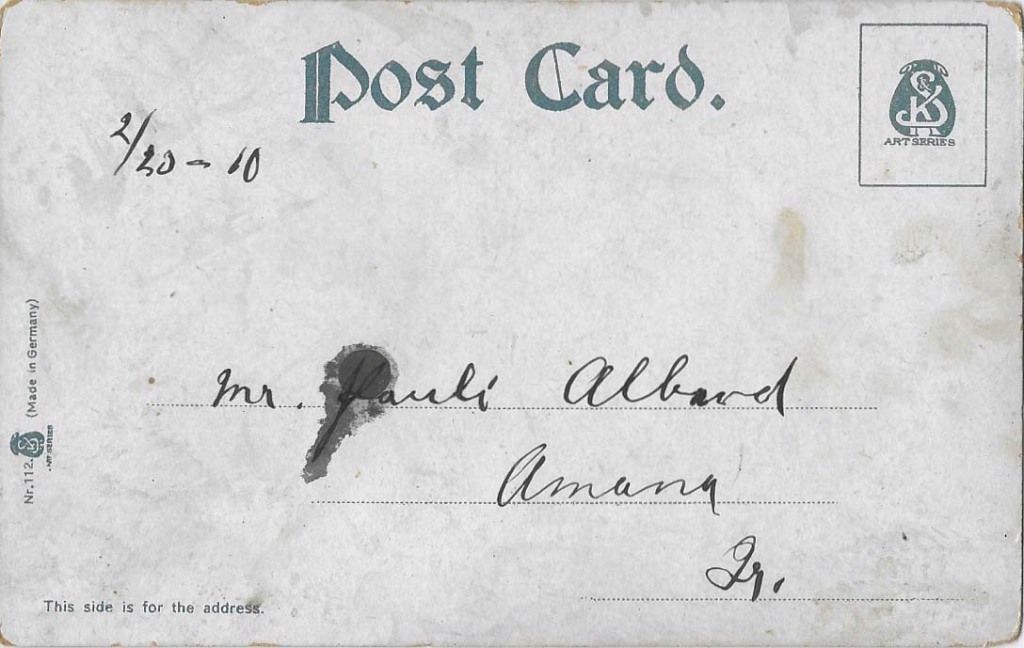 Post Card.
S&K
ART SERIES
2/20 - 10
Mr. Pauli Alband
Amana
Ia.
Nr. 112. S&K ART SERIES (Made in Germany)
This side is for the address.